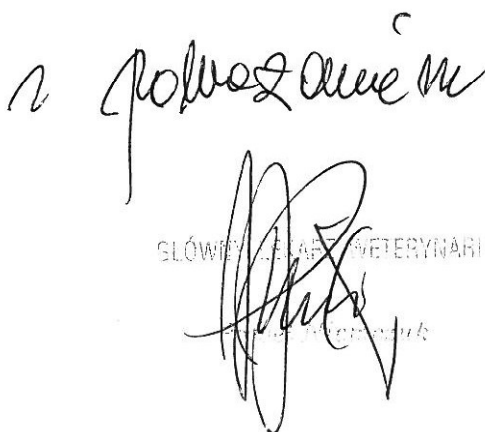 z poważaniem
GŁÓWNY LEKARZ WETERYNARII